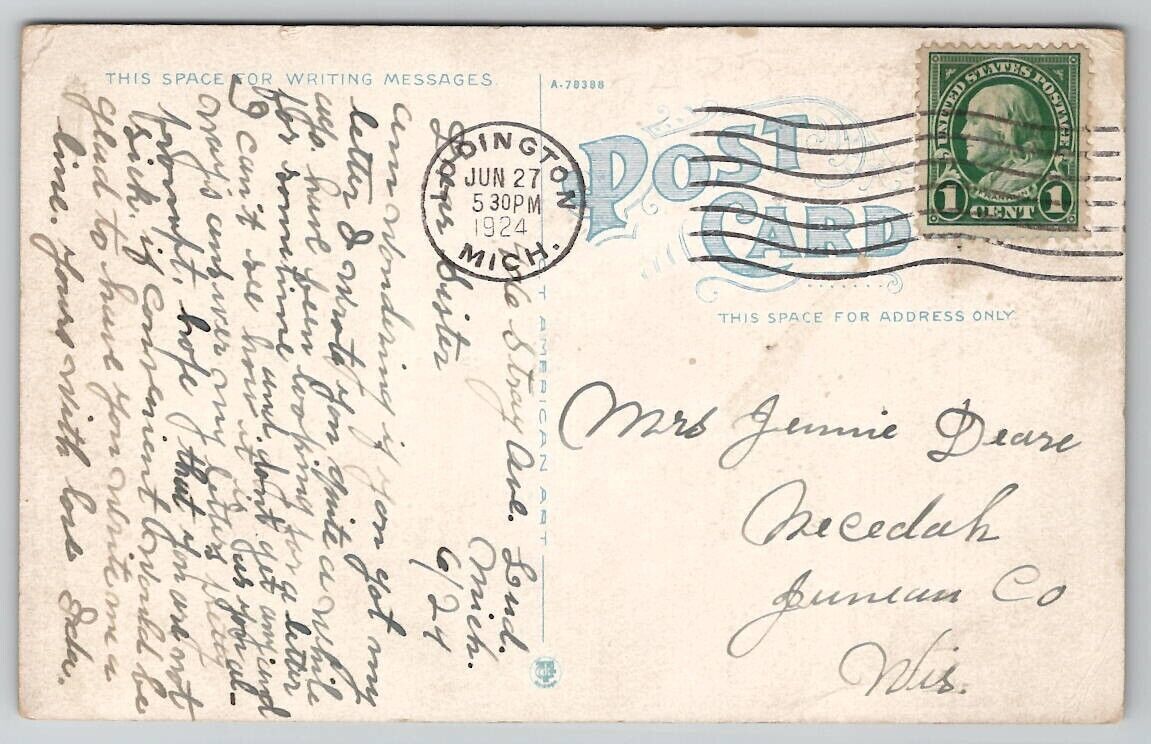 THIS SPACE FOR WRITING MESSAGES.
A-78388
POST CARD
UNITED STATES POSTAGE
FRANKLIN
1 CENT 1
LUDINGTON
JUN 27
5 30 PM
1924
MICH.
THIS SPACE FOR ADDRESS ONLY.
AMERICAN ART
Stray Ave. Lud.
Mich.
6/24
Dear Sister
am wondering if you got my
letter I wrote you quite a while
ago have been looking for a letter
for sometime and dont get any and
I can't see how it is for you al-
ways answer my letters pretty
prompt, hope that you are not
sick. if convenient would be
glad to have you write me a
line. Yours with love Ida.
Mrs Jennie Deare
Necedah
Juneau Co
Wis.